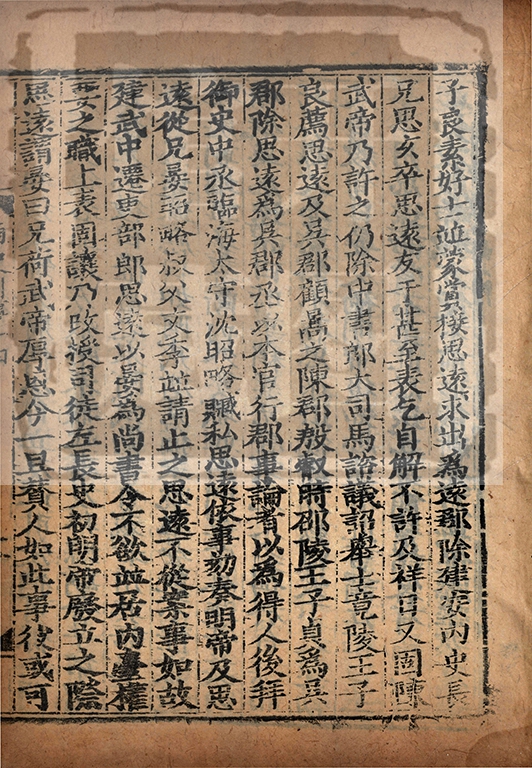 子良素好士並蒙賞接思遠求出爲遠郡除建安内史長
兄思玄卒思遠友于甚至表乞自解不許及祥日又固陳
武帝乃許之仍除中書郎大司馬諮議詔舉士竟陵王子
良薦思遠及吴郡顧暠之陳郡殷叡時邵陵王子貞爲吴
郡除思遠爲吴郡丞以本官行郡事論者以為得人後拜
御史中丞臨海太守沈昭略贓私思遠依事劾奏明帝及思
遠從兄晏昭略叔父文季並請止之思遠不從案事如故
建武中遷吏部郎思遠以晏為尚書令不欲並居内臺權
要之職上表固讓乃改授司徒左長史初明帝廢立之際
思遠謂晏曰兄荷武帝厚恩今一旦賛人如此事彼或可